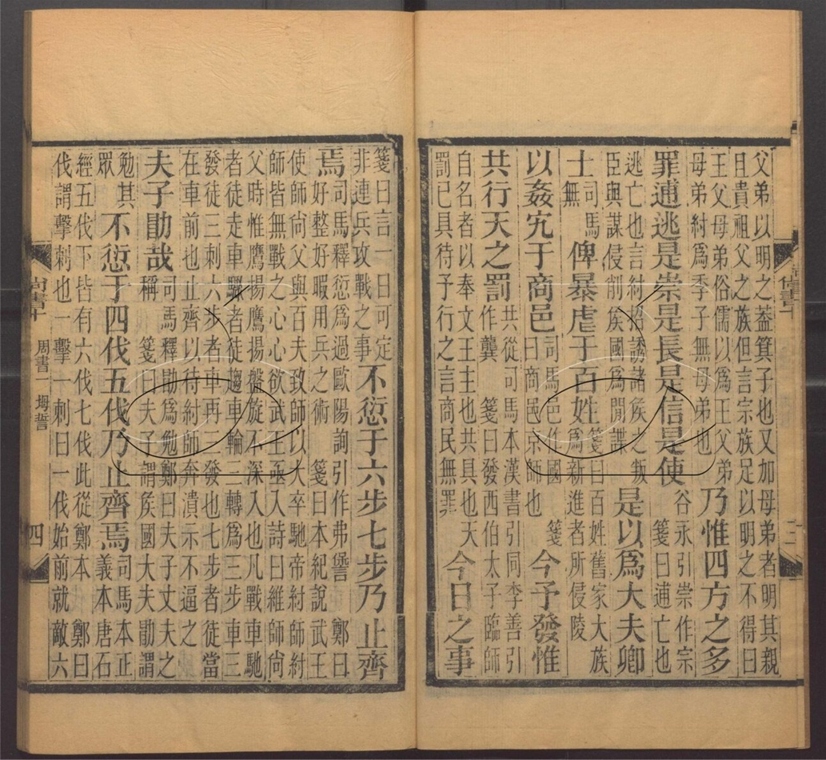 父弟以明之蓋箕子也又加母弟者明其親
且貴祖父之族但言宗族足以明之不得曰
王父母弟俗儒以爲王父弟
母弟紂爲季子無母弟也
乃惟四方之多
罪逋逃是崇是長是信是使
谷永引崇作宗
箋曰逋亡也
逃亡也言紂招誘諸侯之叛
臣與謀侵削侯國爲閒諜
是以爲大夫卿
士
司馬
無
俾暴虐于百姓
箋曰百姓舊家大族
爲新進者所侵陵
以姦宄于商邑
司馬邑作國 箋
曰商邑京師也
今予發惟
共行天之罰
共從司馬本漢書引同李善引
作龔 箋曰發西伯太子臨師
自名者以奉文王主也共具也天
罰已具待予行之言商民無罪
今日之事
箋曰言一日可定
非連兵攻戰之事
不愆于六步七步乃止齊
焉
司馬釋愆爲過歐陽詢引作弗諐 鄭曰
好整好暇用兵之術 箋曰本紀說武王
使師尚父與百夫致師以大卒馳帝紂師紂
師皆無戰之心心欲武王亟入詩曰維師尚
父時惟鷹揚鷹揚盤旋不深入也凡戰車馳
者徒走車驟者徒趨車輪三轉爲三步車三
發徒三刺六步者車再三發也七步者徒當
在車前也止齊以待紂師奔潰示不逼之
夫子勖哉
司馬釋勖爲勉鄭曰夫子丈夫之
稱 箋曰夫子謂侯國大夫勖謂
勉其
眾
不愆于四伐五伐乃止齊焉
司馬本正
義本唐石
經五伐下皆有六伐七伐此從鄭本 鄭曰
伐謂擊刺也一擊一刺曰一伐始前就敵六
周書一 坶誓
四